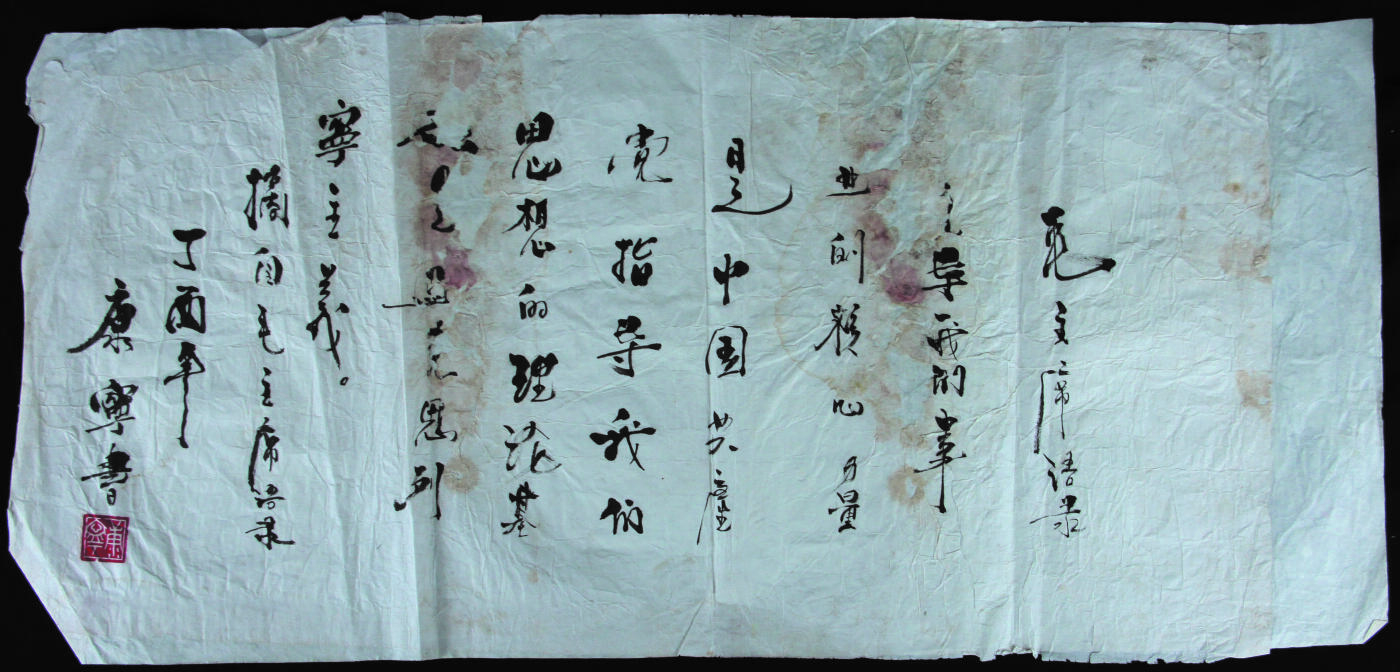 毛主席语录
导我们事
业的核心力量
是中国共產
党指导我们
思想的理论基
思列
寧主義。
摘自毛主席语录
丁酉年
康寧書